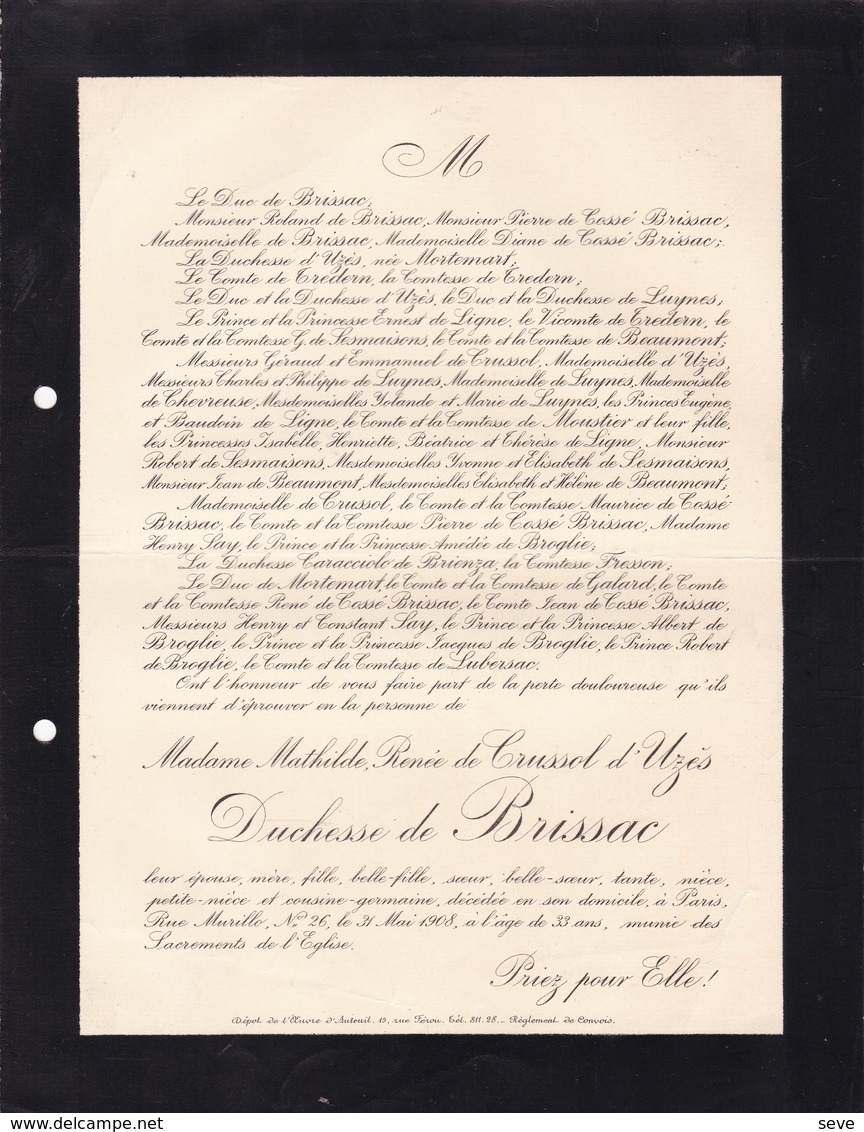 M
Le Duc de Brissac;
Monsieur Roland de Brissac, Monsieur Pierre de Cossé Brissac,
Mademoiselle de Brissac, Mademoiselle Diane de Cossé Brissac;
La Duchesse d'Uzès, née Mortemart;
Le Comte de Trédern, la Comtesse de Trédern;
Le Duc et la Duchesse d'Uzès, le Duc et la Duchesse de Luynes;
Le Prince et la Princesse Ernest de Ligne, le Vicomte de Tredern, le
Comte et la Comtesse G. de Sesmaisons, le Comte et la Comtesse de Beaumont;
Messieurs Géraud et Emmanuel de Crussol, Mademoiselle d'Uzès,
Messieurs Charles et Philippe de Luynes, Mademoiselle de Luynes, Mademoiselle
de Chevreuse, Mesdemoiselles Yolande et Marie de Luynes, les Princes Eugène
et Baudoin de Ligne, le Comte et la Comtesse de Moustier et leur fille,
les Princesses Isabelle, Henriette, Béatrice et Thérèse de Ligne, Monsieur
Robert de Sesmaisons, Mesdemoiselles Yvonne et Elisabeth de Sesmaisons,
Monsieur Jean de Beaumont, Mesdemoiselles Elisabeth et Hélène de Beaumont;
Mademoiselle de Crussol, le Comte et la Comtesse Maurice de Cossé
Brissac, le Comte et la Comtesse Pierre de Cossé Brissac, Madame
Henry Say, le Prince et la Princesse Amédée de Broglie;
La Duchesse Caracciolo de Brienza, la Comtesse Fresson;
Le Duc de Mortemart, le Comte et la Comtesse de Galard, le Comte
et la Comtesse René de Cossé Brissac, le Comte Jean de Cossé Brissac,
Messieurs Henry et Constant Say, le Prince et la Princesse Albert de
Broglie, le Prince et la Princesse Jacques de Broglie, le Prince Robert
de Broglie, le Comte et la Comtesse de Lubersac.
Ont l'honneur de vous faire part de la perte douloureuse qu'ils
viennent d'éprouver en la personne de
Madame Mathilde, Renée de Crussol d'Uzès
Duchesse de Brissac
leur épouse, mère, fille, belle-fille, sœur, belle-sœur, tante, nièce,
petite-nièce et cousine-germaine, décédée en son domicile, à Paris,
Rue Murillo, Nº 26, le 31 Mai 1908, à l'âge de 33 ans, munie des
Sacrements de l'Eglise.
Priez pour Elle!
Dépôt de l'Œuvre d'Auteuil. 15, rue Férou. Tél. 811.28._ Règlement de Convois.
delcampe.net
seve